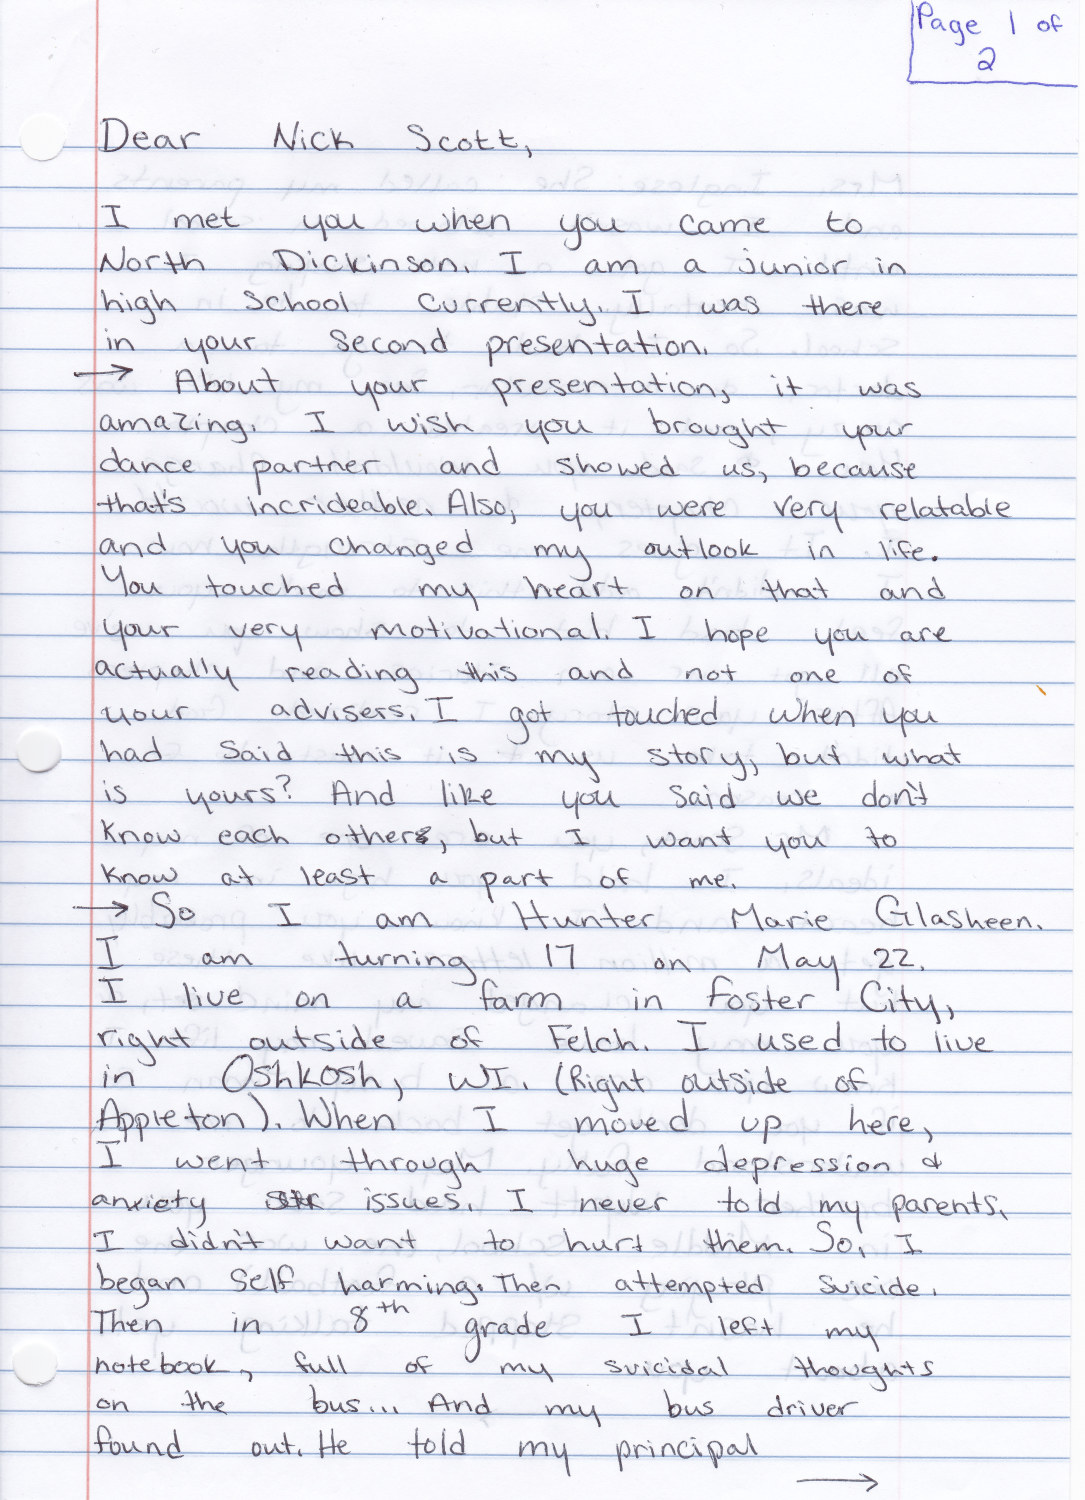 Page 1 of
2
Dear Nick Scott,
I met you when you came to
North Dickinson. I am a junior in
high school currently. I was there
in your second presentation.
→ About your presentation, it was
amazing. I wish you brought your
dance partner and showed us, because
that's incrideable. Also, you were very relatable
and you changed my outlook in life.
You touched my heart on that and
your very motivational. I hope you are
actually reading this and not one of
your advisers. I got touched when you
had said this is my story, but what
is yours? And like you said we don't
know each other, but I want you to
know at least a part of me.
→ So I am Hunter Marie Glasheen.
I am turning 17 on May 22.
I live on a farm in Foster City,
right outside of Felch. I used to live
in Oshkosh, WI. (Right outside of
Appleton). When I moved up here,
I went through huge depression &
anxiety issues. I never told my parents,
I didn't want to hurt them. So, I
began self harming. Then attempted suicide.
Then in 8th grade I left my
notebook, full of my suicidal thoughts
on the bus... And my bus driver
found out. He told my principal
→